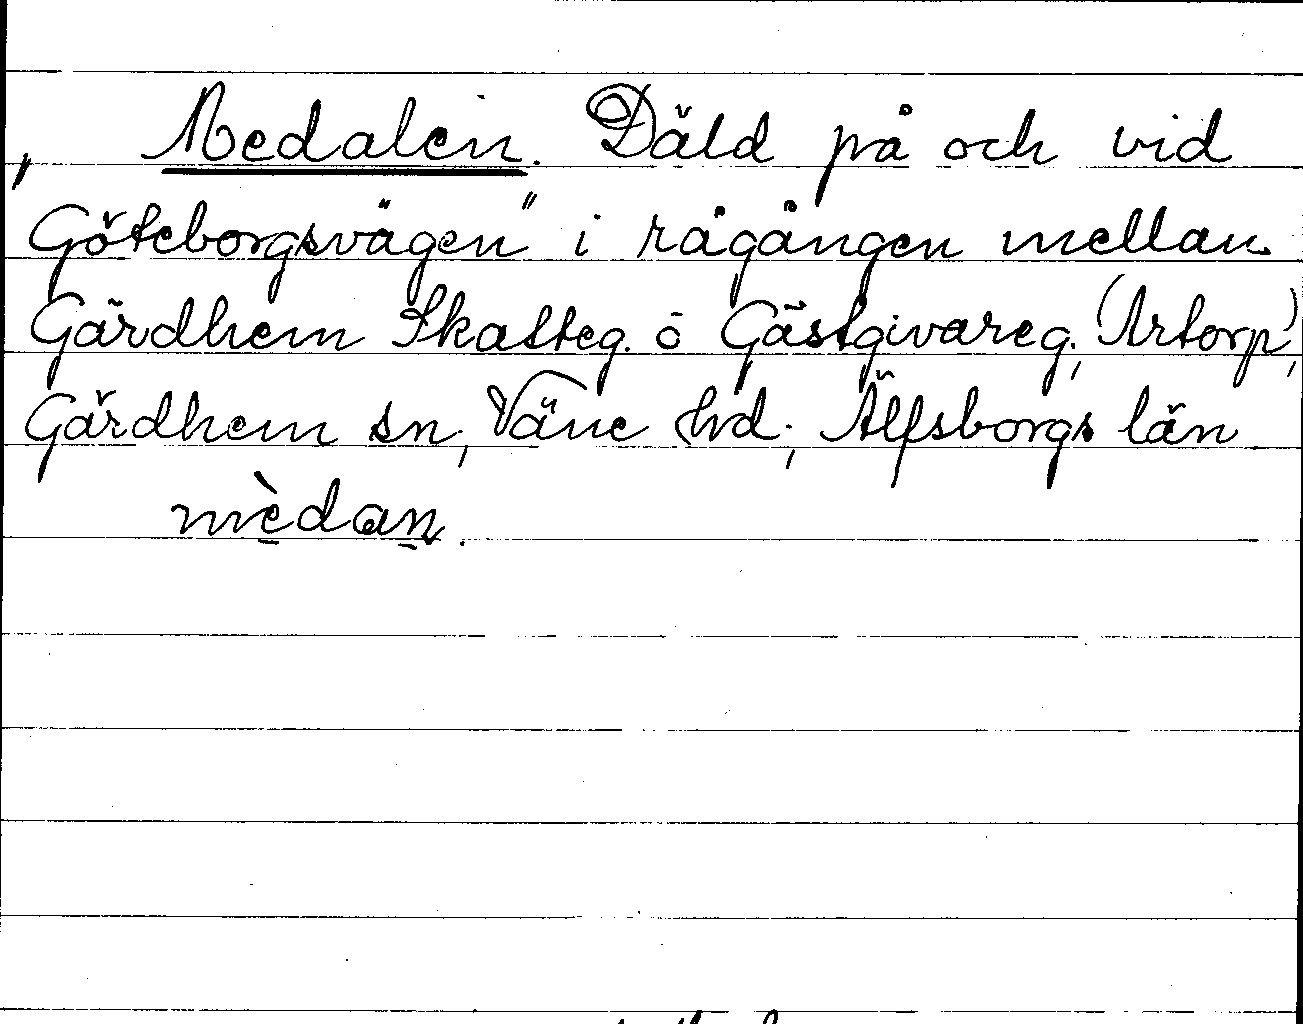 Medalen. Däld på och vid
„Göteborgsvägen" i rågången mellan
Gärdhem Skatteg. o Gästgivareg., (Artorp),
Gärdhem sn, Väne hd; Älfsborgs län
mèdan.